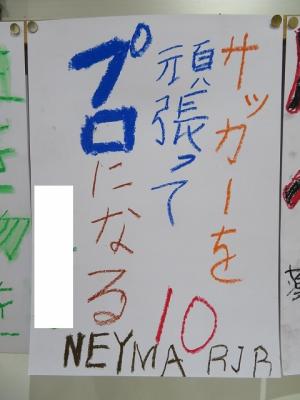 サッカーを
頑張って
プロになる
10
NEYMA RJR